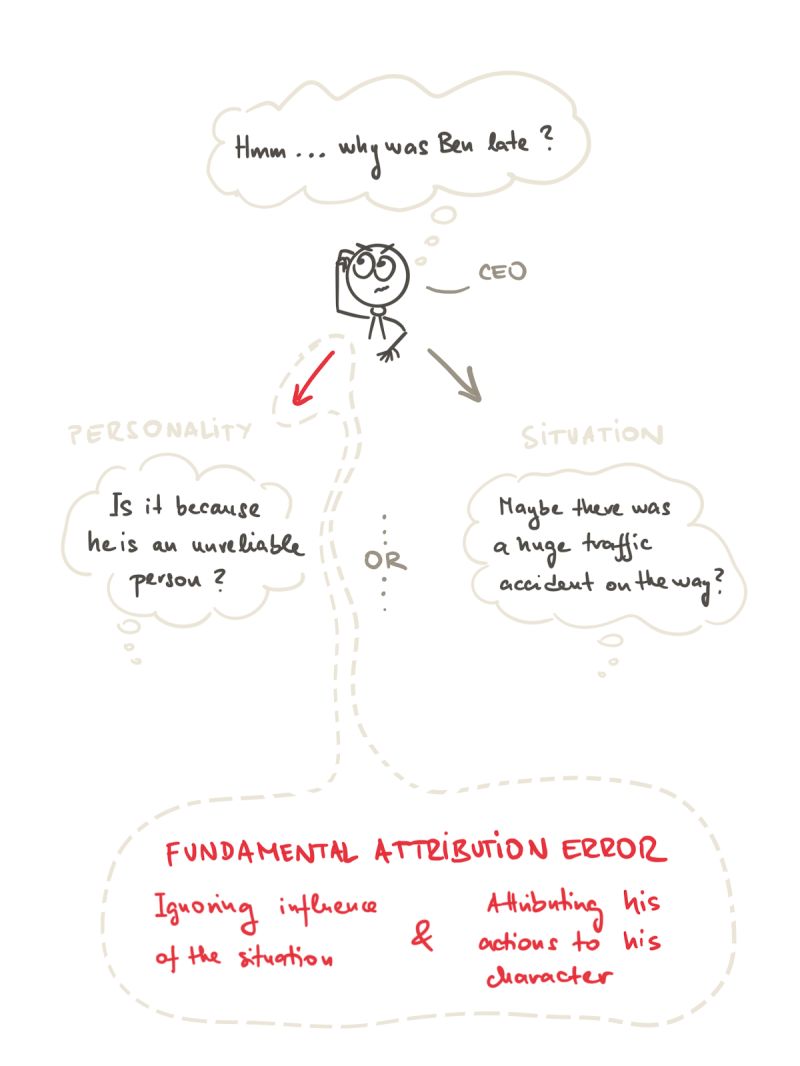 Hmm ... why was Ben late ?
CEO
PERSONALITY
Is it because
he is an unreliable
person ?
OR
SITUATION
Maybe there was
a huge traffic
accident on the way?
FUNDAMENTAL ATTRIBUTION ERROR
Ignoring influence
of the situation
&
Attributing his
actions to his
character